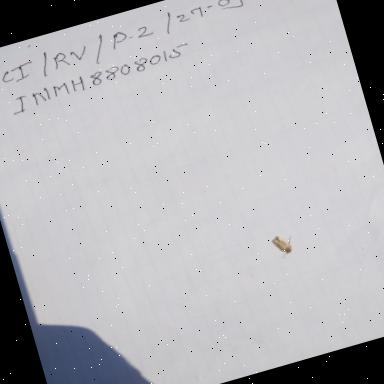 CI/RV/P-2/27-09
INMH8808015